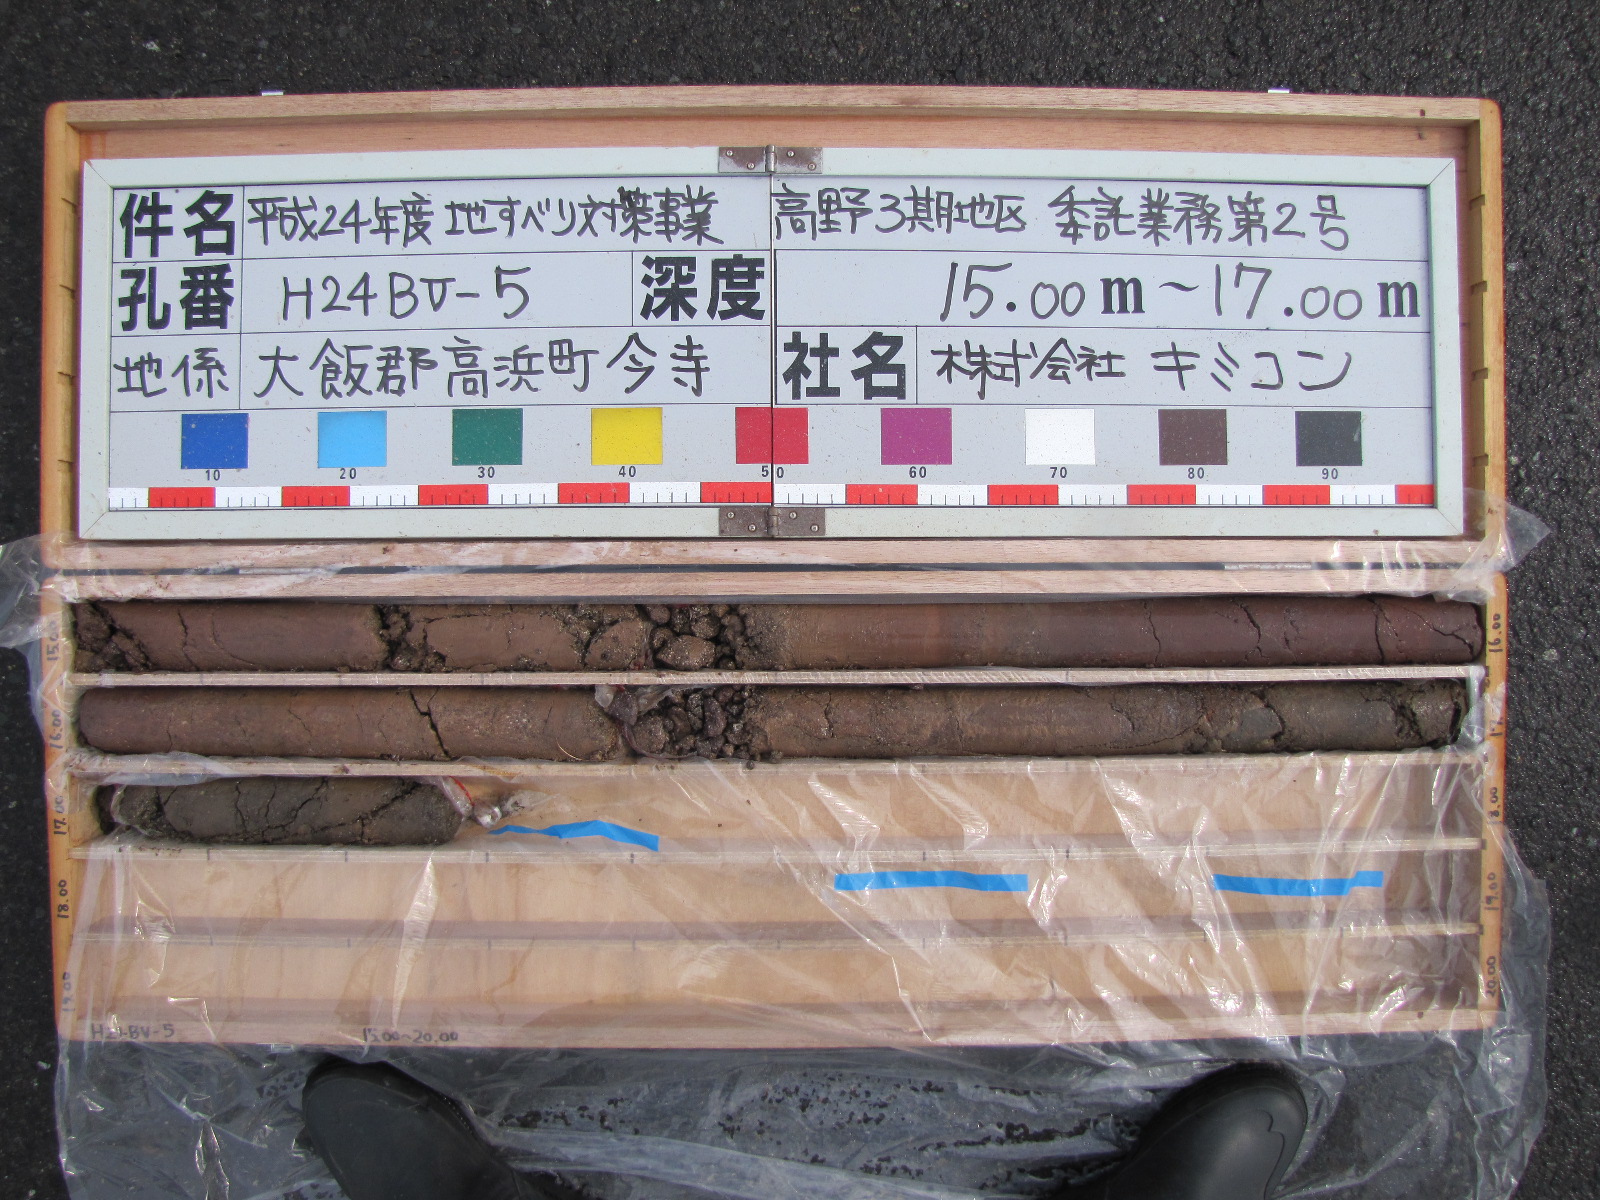 件名 平成24年度 地すべり対策事業 高野3期地区 委託業務第2号
孔番 H24BV-5 深度 15.00m～17.00m
地係 大飯郡高浜町今寺 社名 株式会社 キミコン
10 20 30 40 50 60 70 80 90
16.00
16.00
17.00
18.00 19.00
19.00 20.00
H24BV-5 15.00~20.00